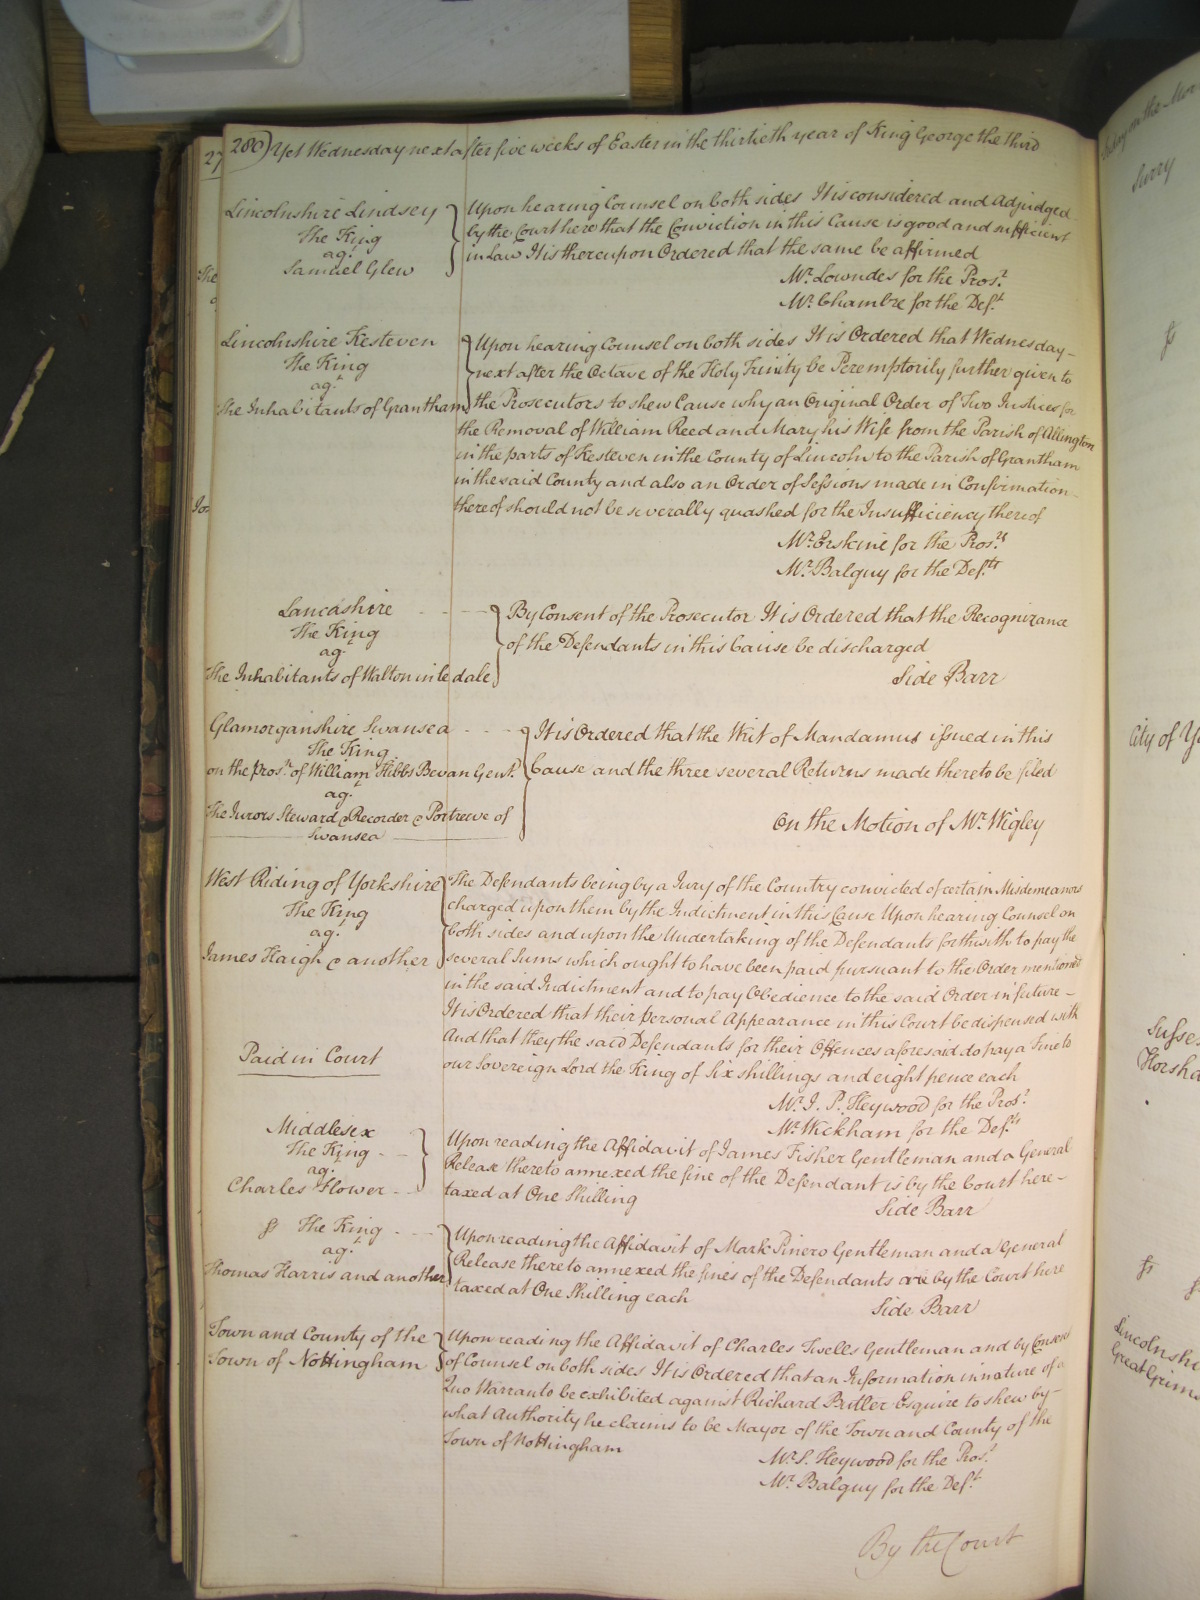 280) Yet Wednesday next after five weeks of Easter in the thirtieth year of King George the third
Lincolnshire Lindsey
The King
agt
Samuel Glew
Upon hearing Counsel on both sides It is considered and Adjudged
by the Court here that the Conviction in this Cause is good and sufficient
in Law It is thereupon Ordered that the same be affirmed
Mr. Lowndes for the Prosr.
Mr. Chambre for the Deft.
Lincolnshire Kesteven
The King
agt
The Inhabitants of Grantham
Upon hearing Counsel on both sides It is Ordered that Wednesday
next after the Octave of the Holy Trinity be Peremptorily further given to
the Prosecutors to shew Cause why an Original Order of Two Justices for
the Removal of William Reed and Mary his Wife from the Parish of Allington
in the parts of Kesteven in the County of Lincoln to the Parish of Grantham
in the said County and also an Order of Sessions made in Confirmation
thereof should not be severally quashed for the Insufficiency thereof
Mr. Erskine for the Prosrs
Mr. Balguy for the Defts
Lancashire
The King
agt
The Inhabitants of Walton in le dale
By Consent of the Prosecutor It is Ordered that the Recognizance
of the Defendants in this Cause be discharged
Side Barr
Glamorganshire Swansea
The King
on the Prosn. of William Hibbs Bevan Gent.
agt
The Jurors Steward & Recorder & Portreeve of
Swansea
It is Ordered that the Writ of Mandamus issued in this
Cause and the three several Returns made thereto be filed
On the Motion of Mr. Wigley
West Riding of Yorkshire
The King
agt
James Haigh & another
Paid in Court
The Defendants being by a Jury of the Country convicted of certain Misdemeanors
charged upon them by the Indictment in this Cause Upon hearing Counsel on
both sides and upon the Undertaking of the Defendants forthwith to pay the
several Sums which ought to have been paid pursuant to the Order mentioned
in the said Indictment and to pay Obedience to the said Order in future
It is Ordered that their personal Appearance in this Court be dispensed with
And that they the said Defendants for their Offences aforesaid do pay a Fine to
our Sovereign Lord the King of Six shillings and eight pence each
Mr. I. P. Heywood for the Prosr.
Mr. Wickham for the Defts
Middlesex
The King
agt
Charles Flower
Upon reading the Affidavit of James Fisher Gentleman and a General
Release thereto annexed the fine of the Defendant is by the Court here
taxed at One Shilling
Side Barr
The King
agt
Thomas Harris and another
Upon reading the Affidavit of Mark Pinero Gentleman and a General
Release thereto annexed the fines of the Defendants are by the Court here
taxed at One Shilling each
Side Barr
Town and County of the
Town of Nottingham
Upon reading the Affidavit of Charles Twells Gentleman and by Consent
of Counsel on both sides It is Ordered that an Information in nature of a
Quo Warranto be exhibited against Richard Butler Esquire to shew by
what Authority he claims to be Mayor of the Town and County of the
Town of Nottingham
Mr. S. Heywood for the Prosr.
Mr. Balguy for the Deft.
By the Court
Surry
City of